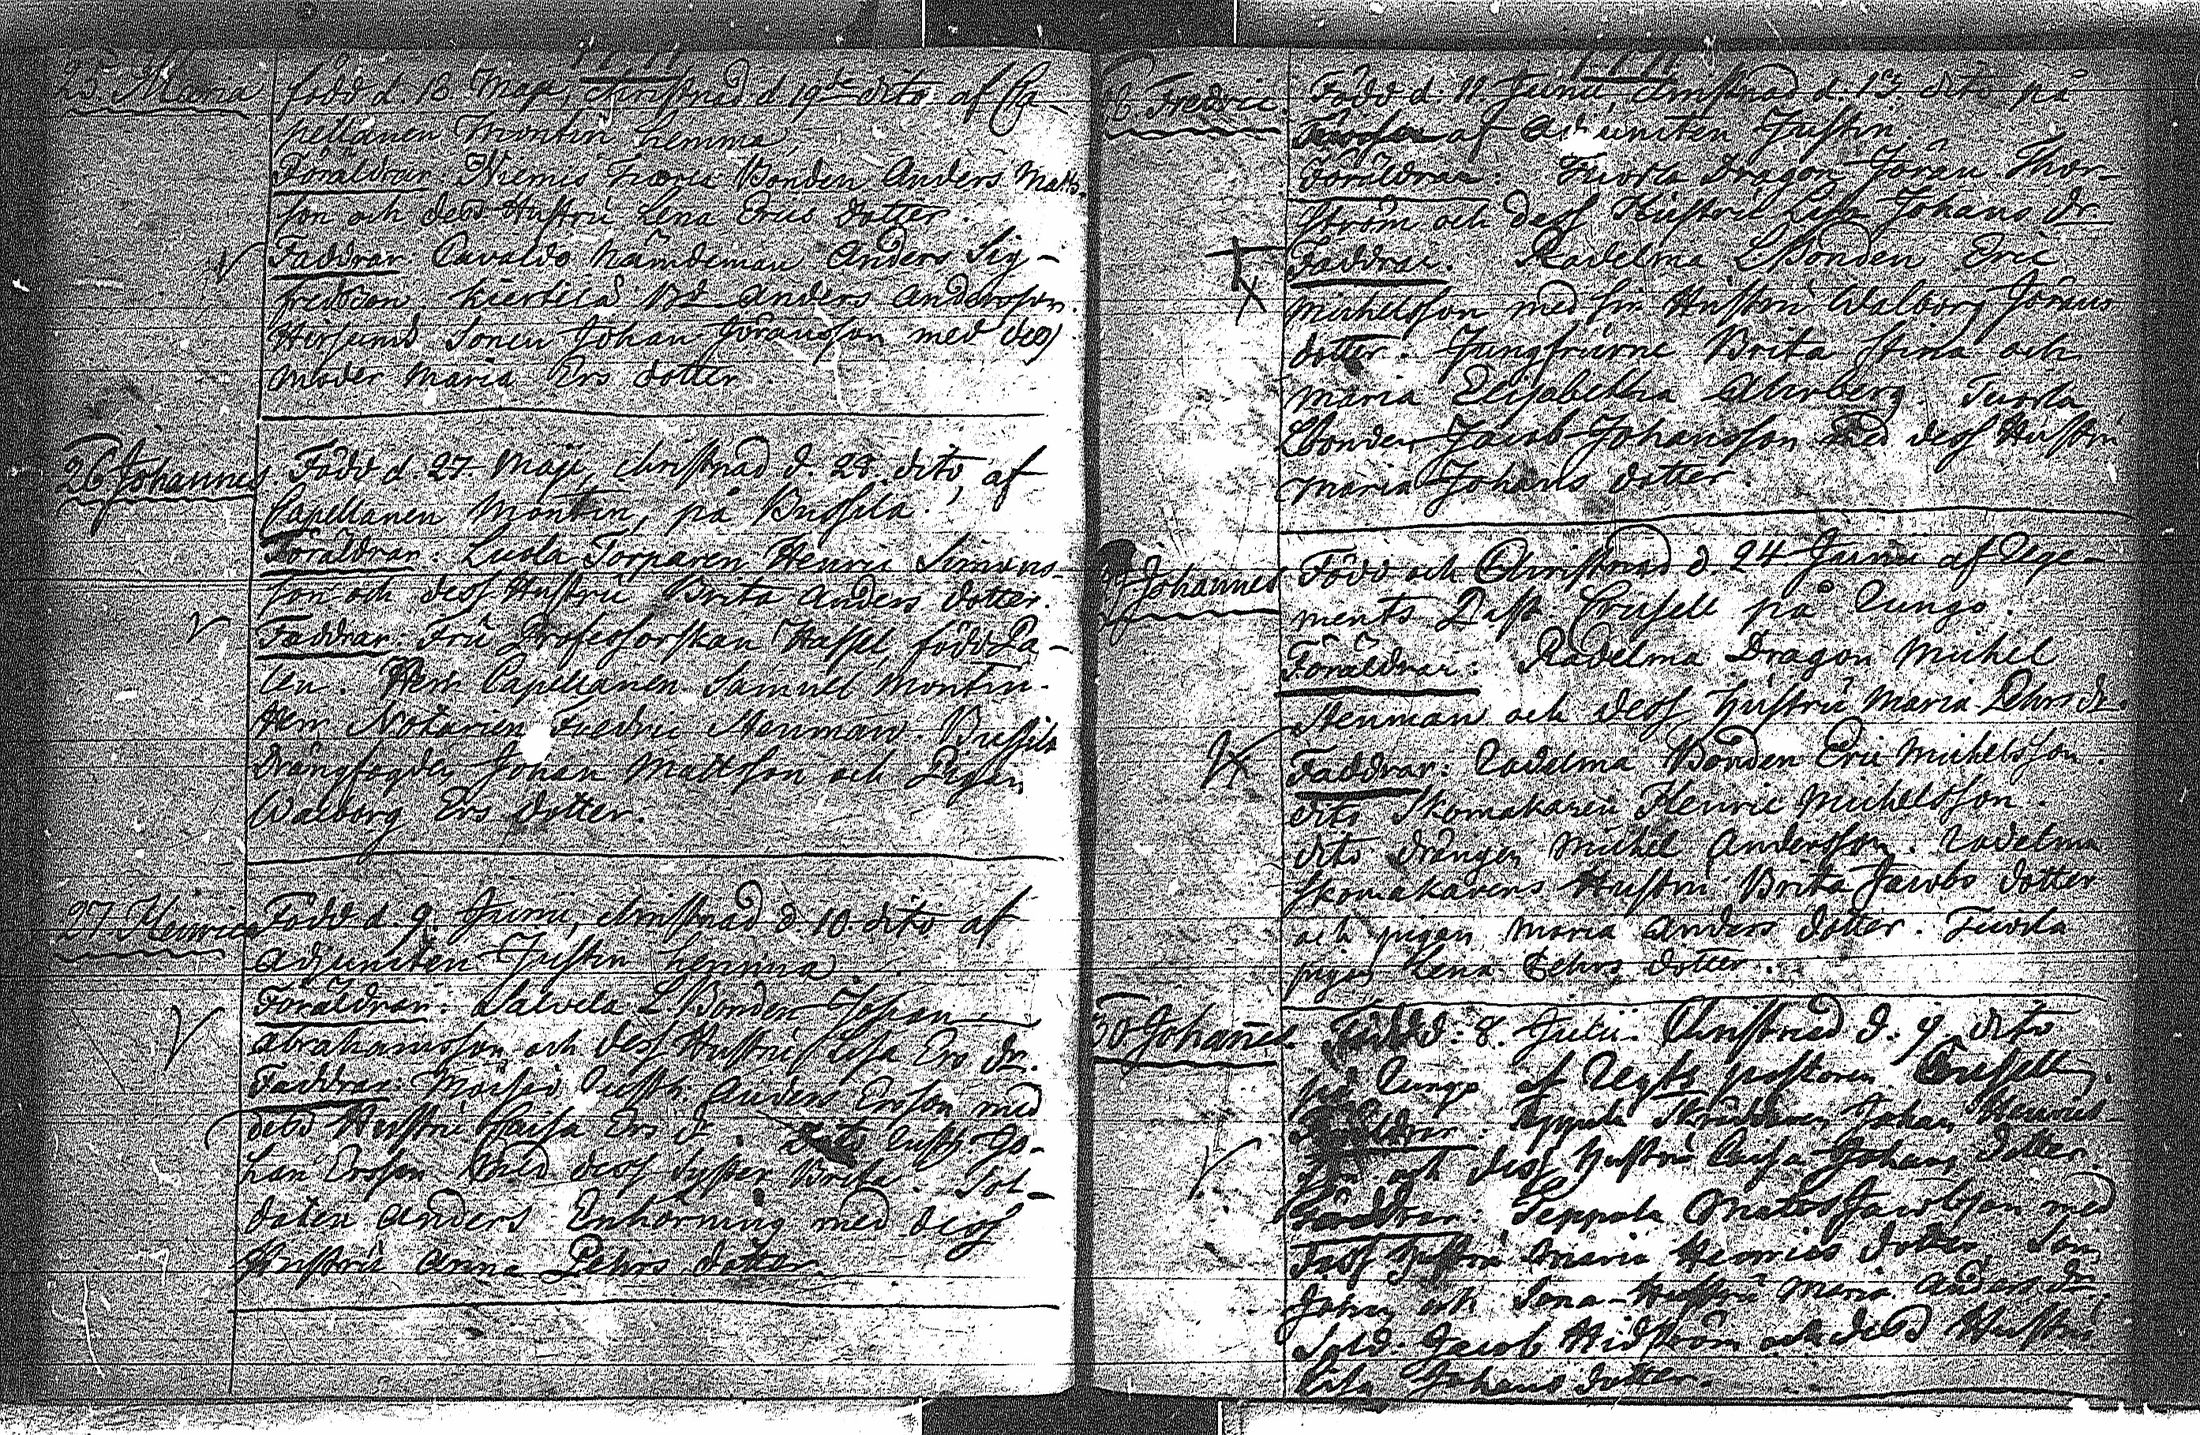 25. Maria
född d. 18 Maji, christnad d. 19de dito af Ca-
pellanen Montin hemma,
Föräldrar. Niemis Bonden Anders Matts
son och dess Hustru Lena Erics dotter.
Faddrar. Cavaldo Nämdeman Anders Sig-
fredsson. Anders Andersson.
Sonen Johan Jöransson med dess
moder Maria Ers dotter.
26 Johannes.
Född d. 27 Maji, christnad d. 28. dito, af
Capellanen Montin, på Bussila.
Föräldrar. Luola Torparen Henric Simons-
son och dess Hustru Brita Anders dotter.
Faddrar. Fru Professorskan Hassel, född Pa-
len. Herr Capellanen Samuel Montin.
Herr Notarien Fredric Stenman Bussila
drängfogden Johan Mattsson och Pigan
Walborg Ers dotter.
27. Henric
Född d. 9. Junii, christnad d. 10. dito af
Adjuncten Justin hemma.
Föräldrar. L. Bonden Johan
Abrahamsson och dess Hustru Lisa Ers dr.
Faddrar. Anders Ersson med
dess Hustru Caisa Ers d. Dito Jo-
han Ersson med dess syster Brita. Sol-
daten Anders Enhörning med dess
Hustru Anna Pehrs dotter
Fredric.
Född d. 11. Junii, christnad d. 13 dito på
af Adjuncten Justin.
Föräldrar. Tuorla Dragon Jöran Thor-
ström och dess Hustru Lisa Johans dr.
Faddrar. Radelma LBonden Eric
Michelsson med sin Hustru Walborg Jörans
dotter. Jungfruerne Brita Stina och
Maria Elisabetha Åkerberg Tuorla
Lbonden Jacob Johansson med dess Hustru
Maria Johans dotter
29 Johannes
Född och Christnad d. 24 Junii af Rege-
ments Past Crusell på Rungo.
Föräldrar: Radelma Dragon Michel
Stenman och dess hustru Maria Pehrs dr.
Faddrar: Radelma Bonden Eric Michelsson.
dito Skomakaren Henric Michelsson.
dito drängen Michel Andersson. Radelma
Skomakarens Hustru Brita Jacobs dotter
och pigan Maria Anders dotter. Tuorla
pigan Lena Pehrs dotter.
30 Johannes.
Född d. 8. Julii. Christnad d. 9. dito
på Rungo af Regts pastoren Crusell.
Föräldrar. Seppela Skräddaren Johan Henrics-
son och dess hustru Caisa Johans dotter
Faddrar. Seppala Mats Jacobsson med
dess hustru Maria Henrics dotter. Son
Johan och Sona-Hustru Maria Anders dr.
Sold. Jacob Hidström och dess Hustru
Johans dotter.